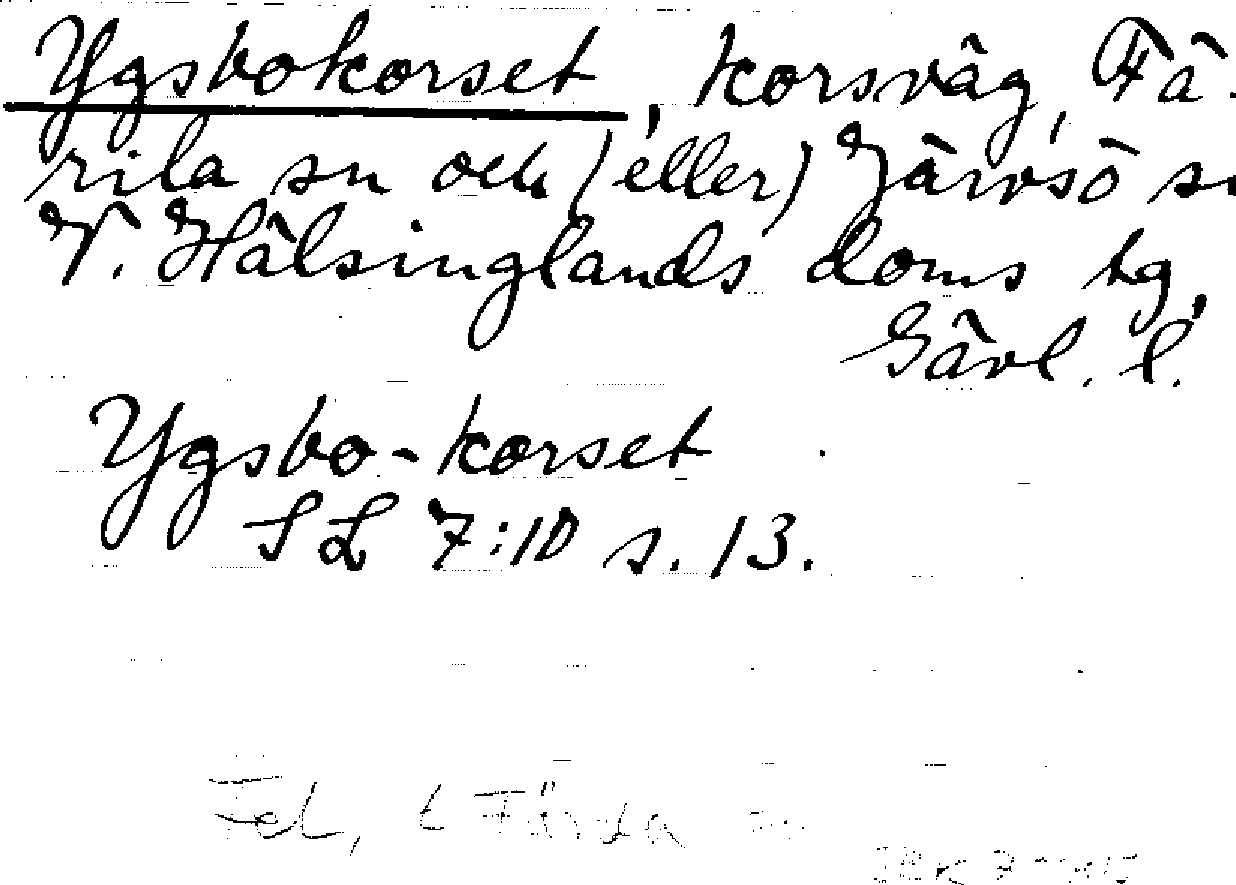 Ygsbokorset, korsväg, Fä-
rila sn och (eller) Järvsö sn
V. Hälsinglands doms tg,
Gävl. l.
Ygsbo-korset
SL 7:10 s. 13.
Fel, t Färila sn